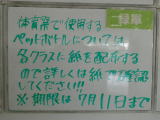 体育祭で使用する
ペットボトルについては
各クラスに紙を配布する
ので詳しくは紙で確認
してください!!
※ 期限は 7月11日まで